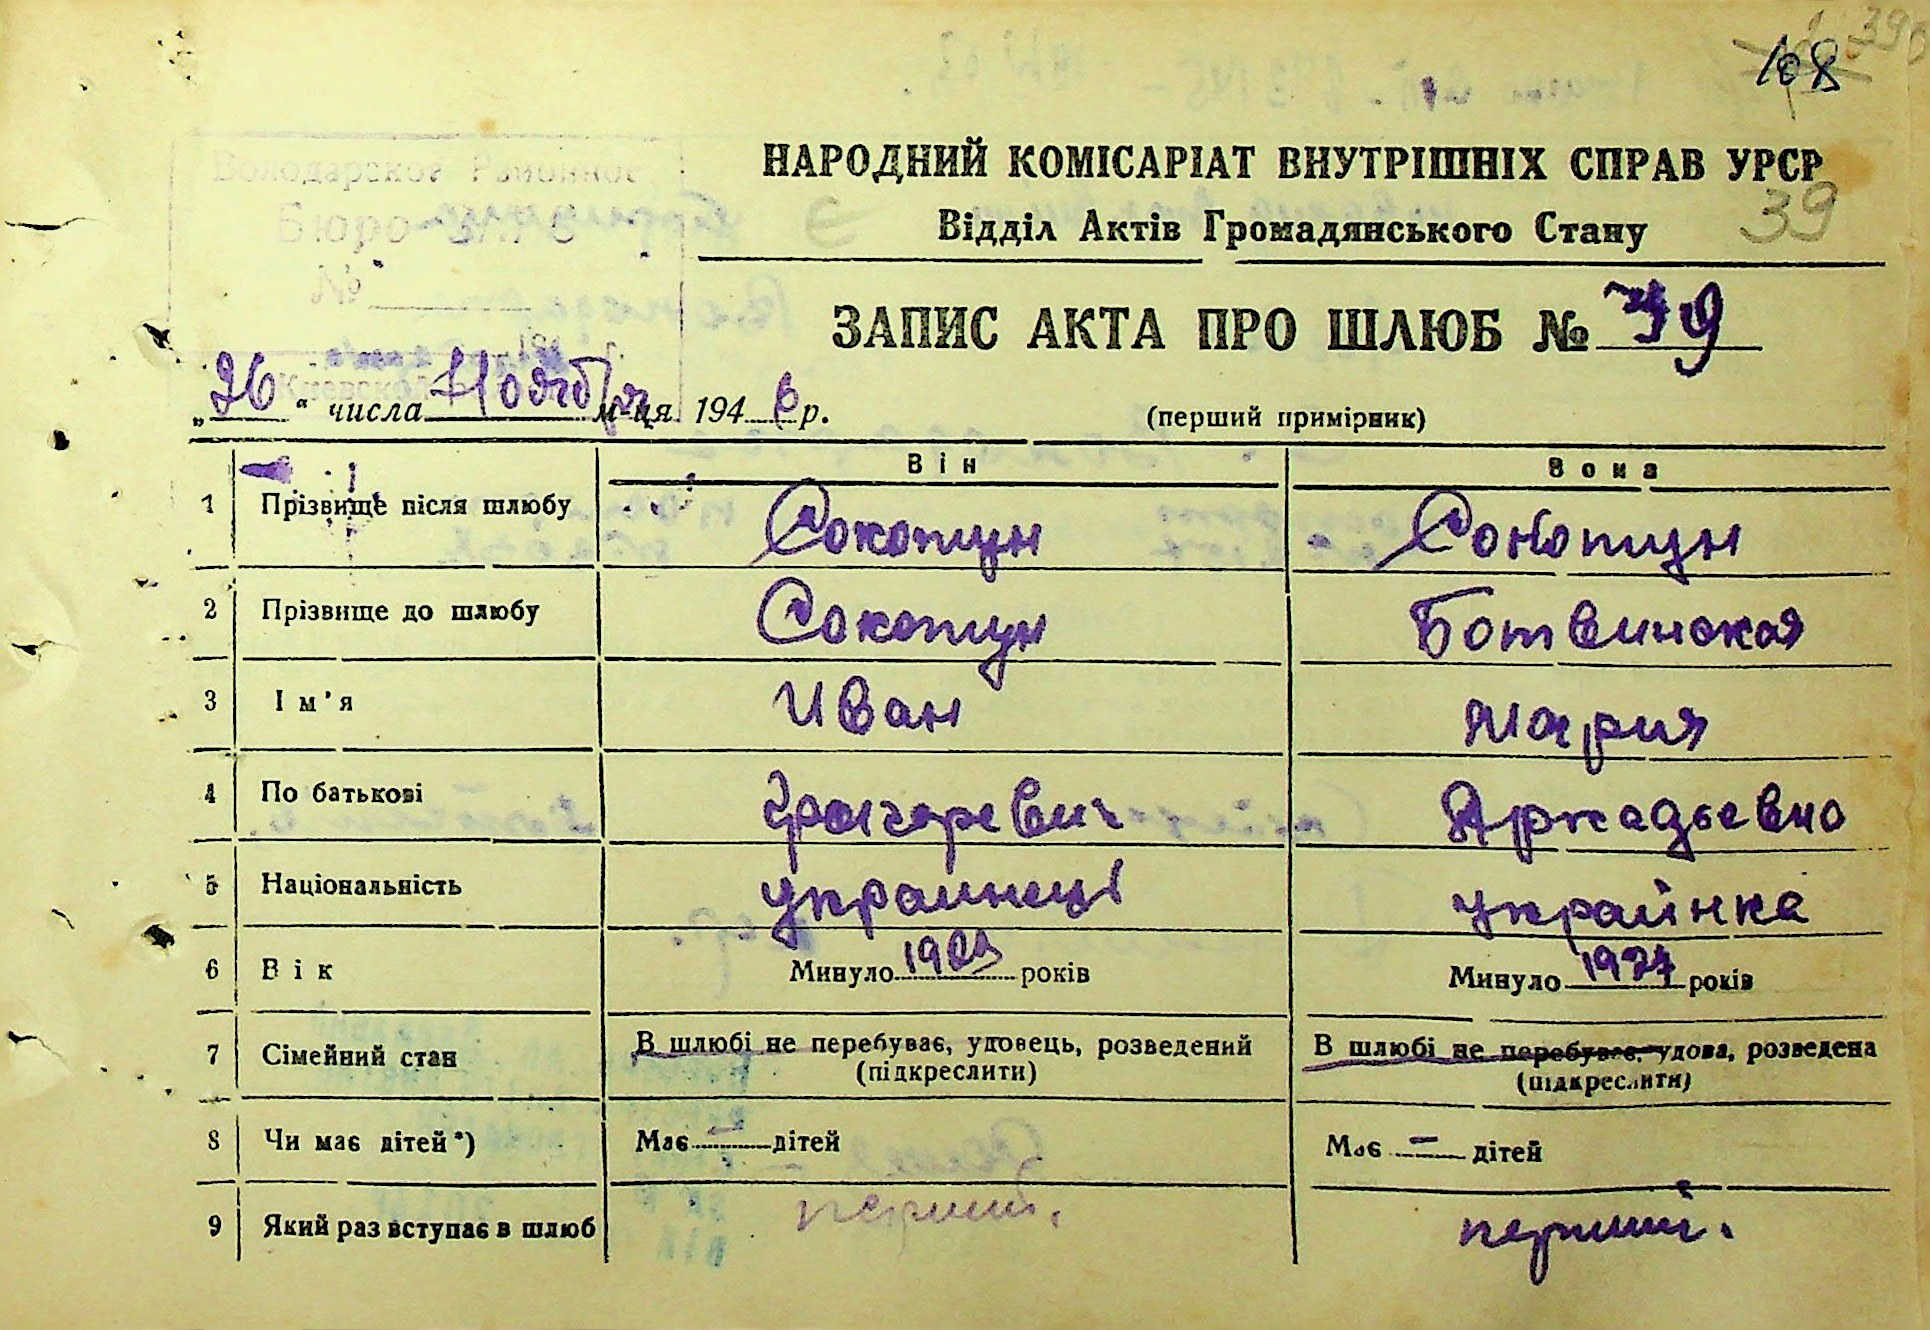 108
НАРОДНИЙ КОМІСАРІАТ ВНУТРІШНІХ СПРАВ УРСР
Відділ Актів Громадянського Стану
39
Володарское Районное
Бюро ЗАГС
№
ЗАПИС АКТА ПРО ШЛЮБ № 39
„26“ числа Ноября м-ця 1946 р.
(перший примірник)
Він Вона
1 Прізвище після шлюбу Сокотун Сокотун
2 Прізвище до шлюбу Сокотун Ботвинская
3 Ім'я Иван Мария
4 По батькові Григоревич Аркадьевна
5 Національність украинець украінка
6 Вік Минуло 1923 років Минуло 1927 років
7 Сімейний стан В шлюбі не перебуває, удовець, розведений В шлюбі не перебуває, удова, розведена
(підкреслити) (підкреслити)
8 Чи має дітей*) Має – дітей Має – дітей
9 Який раз вступає в шлюб перший. перший.